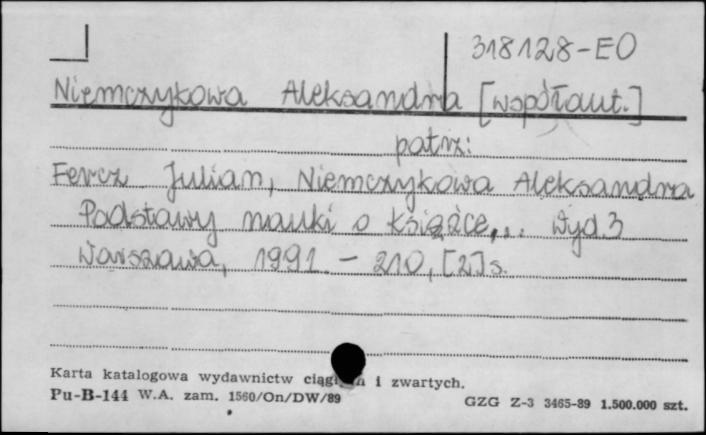 318128-EO
Niemczykowa Aleksandra [współaut.]
patrz:
Fercz Julian, Niemczykowa Aleksandra
Podstawy nauki o książce... Wyd. 3
Warszawa, 1991. - 210, [2] s.
Karta katalogowa wydawnictw i zwartych.
Pu-B-144 W.A. zam. 1560/On/DW/89
GZG Z-3 3465-89 1.500.000 szt.